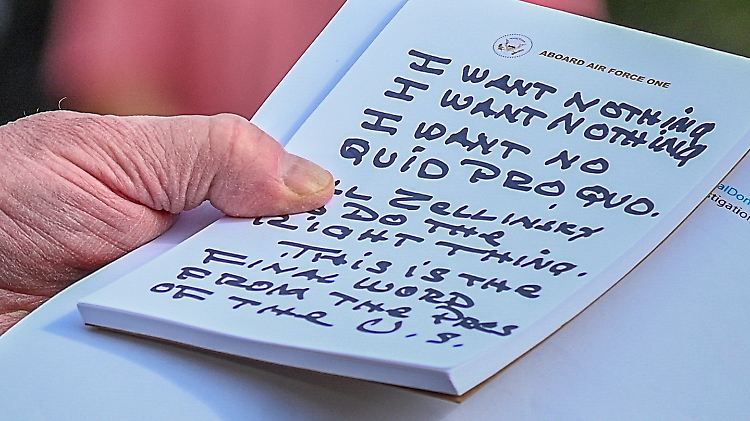 ABOARD AIR FORCE ONE
I WANT NOTHING
I WANT NOTHING
I WANT NO
QUID PRO QUO.
LL ZELLINSKY
O DO THE
RIGHT THING.
THIS IS THE
FINAL WORD
FROM THE PRES
OF THE U.S.
alDon
tigation